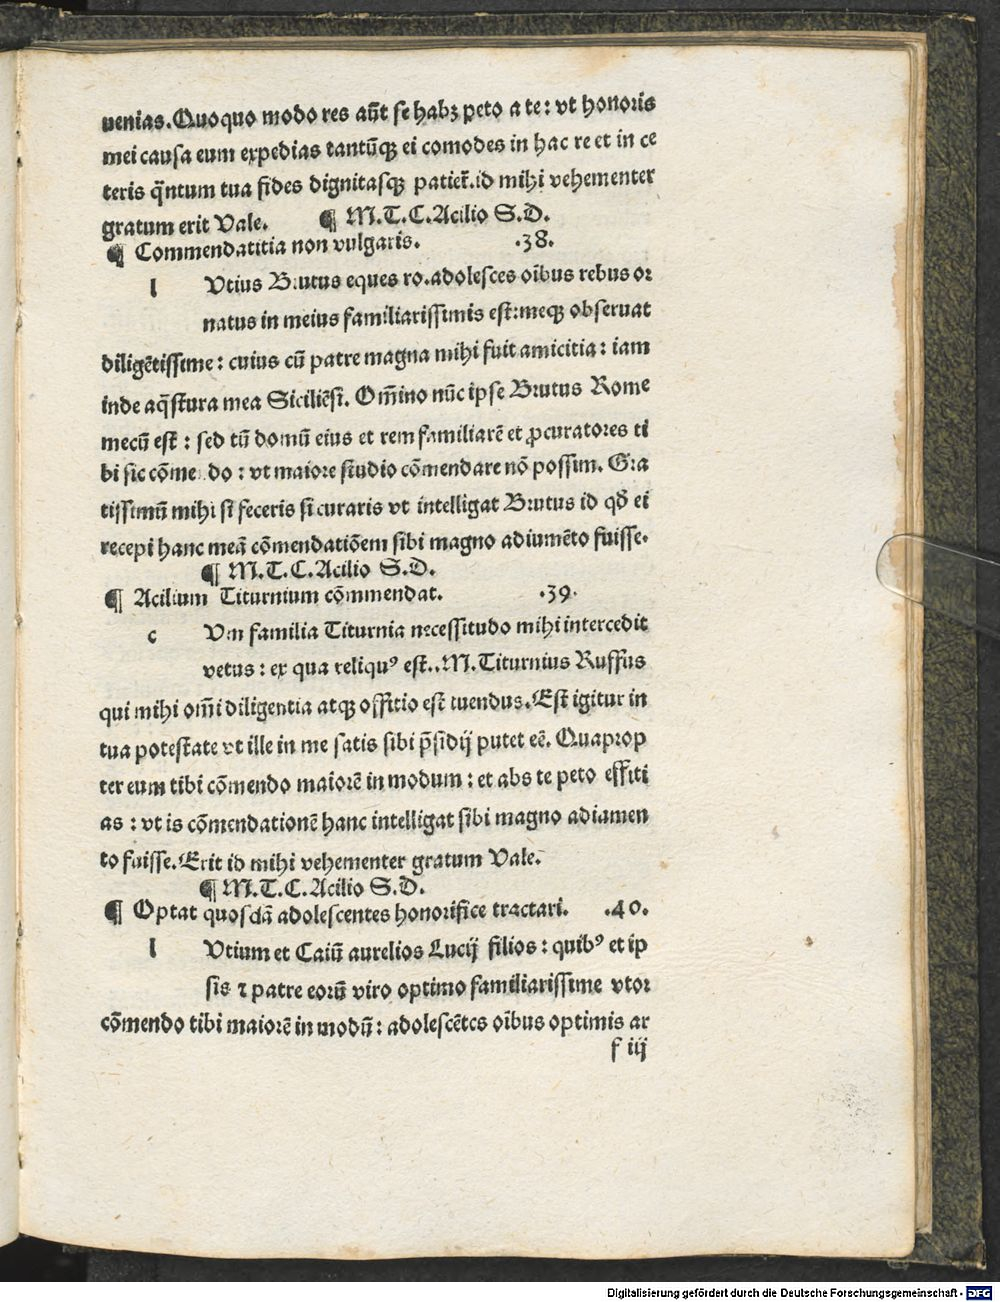 uenias. Quoquo modo res aūt se habꝫ peto a te: vt honoris
mei causa eum expedias tantūqꝫ ei comodes in hac re et in ce
teris q̄ntum tua fides dignitasqꝫ patiet̄. id mihi vehementer
gratum erit Vale. ¶ M.T.C. Acilio S.D.
¶ Commendatitia non vulgaris. .38.
l Vtius Brutus eques ro. adolesces oībus rebus or
natus in meius familiarissimis est: meqꝫ obseruat
diligētissime: cuius cū patre magna mihi fuit amicitia: iam
inde aq̄stura mea Siciliēsi. Om̄ino nūc ipse Brutus Rome
mecū est: sed tū domū eius et rem familiarē et ꝓcuratores ti
bi sic cōme do: vt maiore studio cōmendare nō possim. Gra
tissimū mihi si feceris si curaris vt intelligat Brutus id qđ ei
recepi hanc meā cōmendatiōem sibi magno adiumēto fuisse.
¶ M.T.C. Acilio S.D.
¶ Acilium Titurnium cōmmendat. .39.
c Vm familia Titurnia necessitudo mihi intercedit
vetus: ex qua reliquꝰ est.. M. Titurnius Ruffus
qui mihi om̄i diligentia atqꝫ offitio est tuendus. Est igitur in
tua potestate vt ille in me satis sibi p̄sidij putet eē. Quaprop
ter eum tibi cōmendo maiorē in modum: et abs te peto effiti
as: vt is cōmendationē hanc intelligat sibi magno adiumen
to fuisse. Erit id mihi vehementer gratum Vale.
¶ M.T.C. Acilio S.D.
¶ Optat quosdā adolescentes honorifice tractari. .40.
l Vtium et Caiū aurelios Lucij filios: quibꝰ et ip
sis ⁊ patre eorū viro optimo familiarissime vtor
cōmendo tibi maiorē in modū: adolescētes oībus optimis ar
f iij
Digitalisierung gefördert durch die Deutsche Forschungsgemeinschaft - DFG